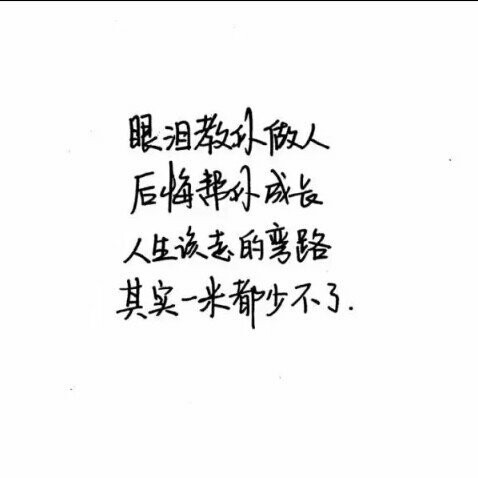 眼泪教你做人
后悔帮你成长
人生该走的弯路
其实一米都少不了.